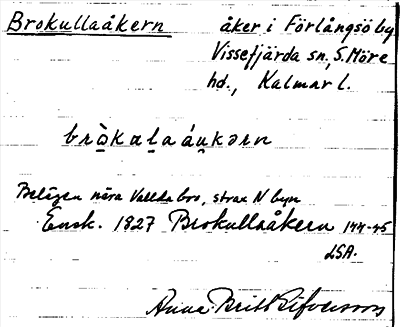 Brokullaåkern åker i Förlångsö by
Vissefjärda sn, S. Möre
hd., Kalmar l.
bròkalaáukərn
Belägen nära Vallda bro, strax N byn
Ensk. 1827 Brokullaåkern 144-45
LSA.
Anna-Britt